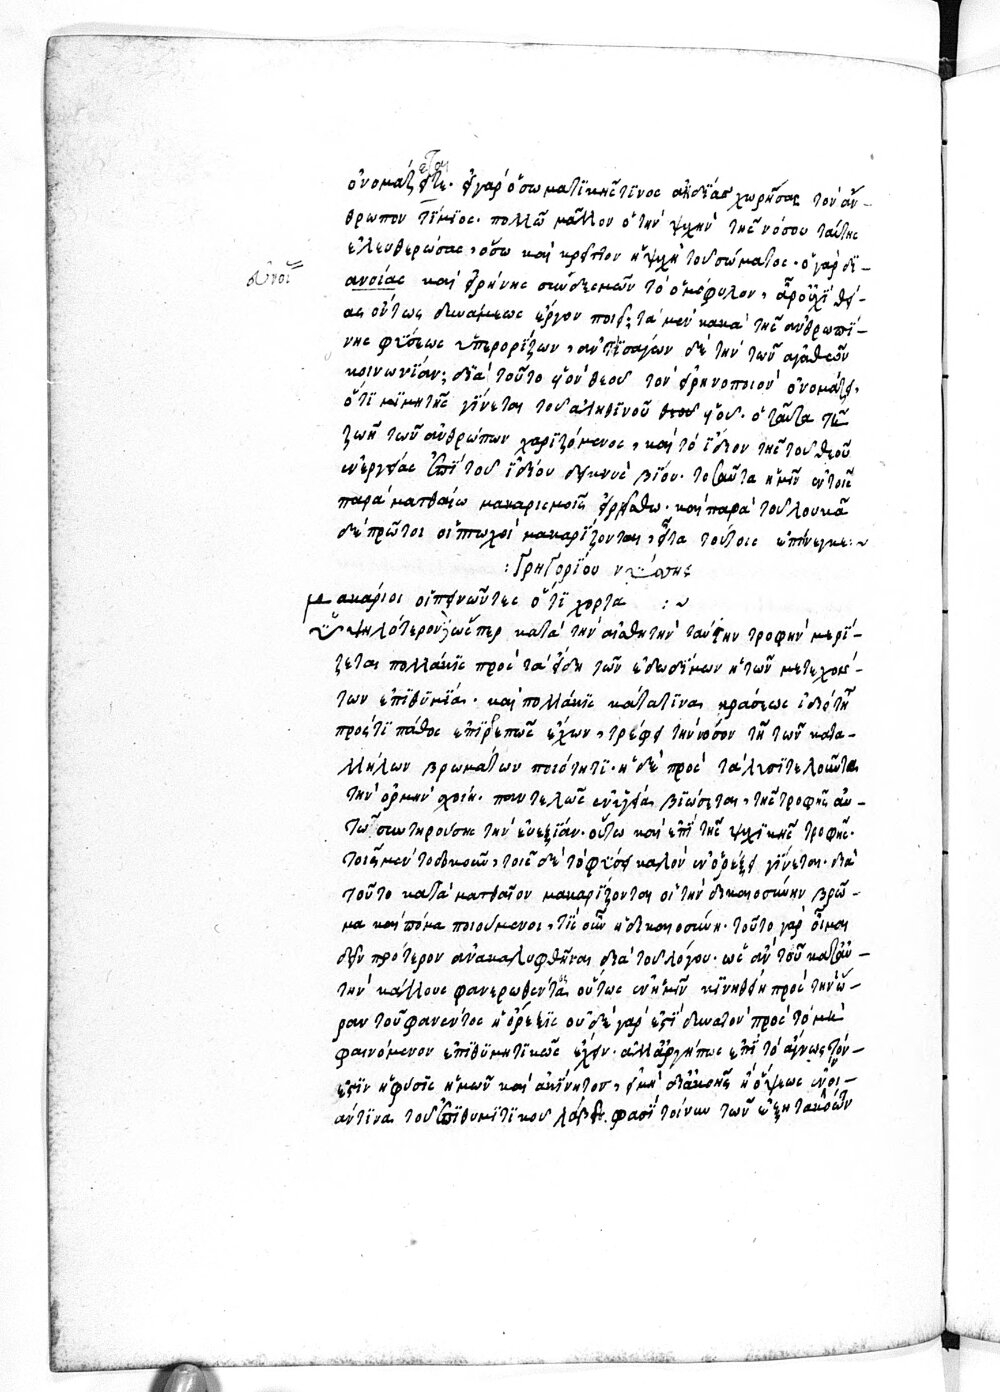 ὀνομάζεται
ὀνομάζετε. εἰ γὰρ ὁ σωματικῆς τινος ἀηδίας χωρήσας τὸν ἄν-
θρωπον τίμιος. πολλῷ μᾶλλον ὁ τὴν ψυχὴν τῆς νόσου ταύτης
ἐλευθερώσας, ὅσῳ καὶ κρεῖττον ἡ ψυχὴ τοῦ σώματος. ὁ γὰρ δι-
εὐνοί
ανοίας καὶ εἰρήνης συνδεσμῶν τὸ ὁμόφυλον, ἆρ οὐχὶ θεί-
ας ὄντως δυνάμεως ἔργον ποιεῖ; τὰ μὲν κακὰ τῆς ἀνθρωπί-
νης φύσεως ὑπερορίζων, ἀντεισάγων δὲ τὴν τῶν ἀγαθῶν
κοινωνίαν; διὰ τοῦτο υἱὸν θεοῦ τὸν εἰρηνοποιὸν ὀνομάζει,
ὅτι μιμητὴς γίνεται τοῦ ἀληθινοῦ θεοῦ υἱοῦ. ὁ ταῦτα τῇ
ζωῇ τῶν ἀνθρώπων χαριζόμενος, καὶ τὸ ἴδιον τῆς τοῦ θεοῦ
ἐνεργείας ἐπὶ τοῦ ἰδίου δεικνὺς βίου. τοσαῦτα ἡμῖν ἐν τοῖς
παρὰ ματθαίω μακαρισμοῖς εἰρήσθω. καὶ παρὰ τοῦ λουκᾶ
δὲ πρῶτοι οἱ πτωχοὶ μακαρίζονται, εἶτα τούτοις ἐπήνεγκε:~
:Γρηγορίου νύσσης
μακάριοι οἱ πεινῶντες ὅτι χορτα :~
ὑψηλότερον ὥσπερ κατὰ τὴν αἰσθητὴν ταύτην τροφὴν μερί-
ζεται πολλάκις πρὸς τὰ εἴδη τῶν ἐδωδίμων ἡ τῶν μετεχόν-
των ἐπιθυμία. καὶ πολλάκις κατά τινα κράσεως ἰδιότητα
πρός τι πάθος ἐπιρρεπῶς ἔχων, τρέφει τὴν νόσον τῇ τῶν κατα-
λλήλων βρωμάτων ποιότητι. ἡ δὲ πρὸς τὰ λυσιτελοῦντα
τὴν ὁρμὴν ἔχοι. παντελῶς ἐν ὑγείᾳ βιώσεται, τῆς τροφῆς αὐ-
τῷ συντηρούσης τὴν εὐεξίαν. οὕτω καὶ ἐπὶ τῆς ψυχικῆς τροφῆς.
τοῖς μὲν τὸ δοκοῦν, τοῖς δὲ τὸ φύσει καλὸν ἐν ὀρέξει γίνεται. διὰ
τοῦτο κατὰ ματθαῖον μακαρίζονται οἱ τὴν δικαιοσύνην βρῶ-
μα καὶ πόμα ποιούμενοι, τίς οὖν ἡ δικαιοσύνη. τοῦτο γὰρ οἶμαι
δεῖν πρότερον ἀνακαλυφθῆναι διὰ τοῦ λόγου. ὡς ἂν τοῦ κατ' αὐ-
τὴν κάλλους φανερωθέντος οὕτως ἐν ἡμῖν κινηθείη πρὸς τὴν ὥ-
ραν τοῦ φανέντος ἡ ὄρεξις οὐδὲ γὰρ ἐστὶ δυνατὸν πρὸς τὸ μὴ
φαινόμενον ἐπιθυμητικῶς ἔχειν. ἀλλ' ἀργή πως ἐπὶ τὸ ἀγνωστὸν
ἐστὶν ἡ φύσις ἡμῶν καὶ ἀκίνητος, εἰ μὴ δι' ἀκοῆς ἢ ὄψεως ἔννοι-
άν τινα τοῦ ἐπιθυμητικοῦ λάβοι. φασὶ τοίνυν τῶν ἐξητακότων